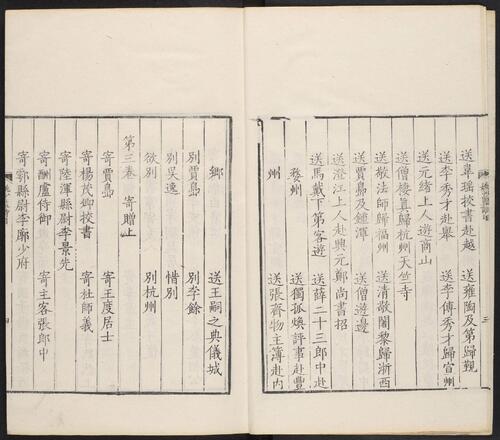 送韋瑶挍書赴越　送雍陶及第歸覲
送李秀才赴舉　送李傳秀才歸宣州
送元緒上人遊商山
送僧棲真歸杭州天竺寺
送敬法師歸福州　送清敬闍黎歸浙西
送賈島及鍾渾　送僧遊邊
送澄江上人赴興元鄭尚書招
送馬戴下第客遊　送薛二十三郎中赴
婺州　送獨孤煥評事赴豐
州　送張齊物主簿赴内
鄉　送王嗣之典儀城
別賈島　別李餘
別吳逸　惜別
欲別　別杭州
第三卷　寄贈上
寄賈島　寄王度居士
寄楊茂卿挍書　寄杜師義
寄陸渾縣尉李景先
寄酬盧侍御　寄主客張郎中
寄鄠縣尉李廓少府